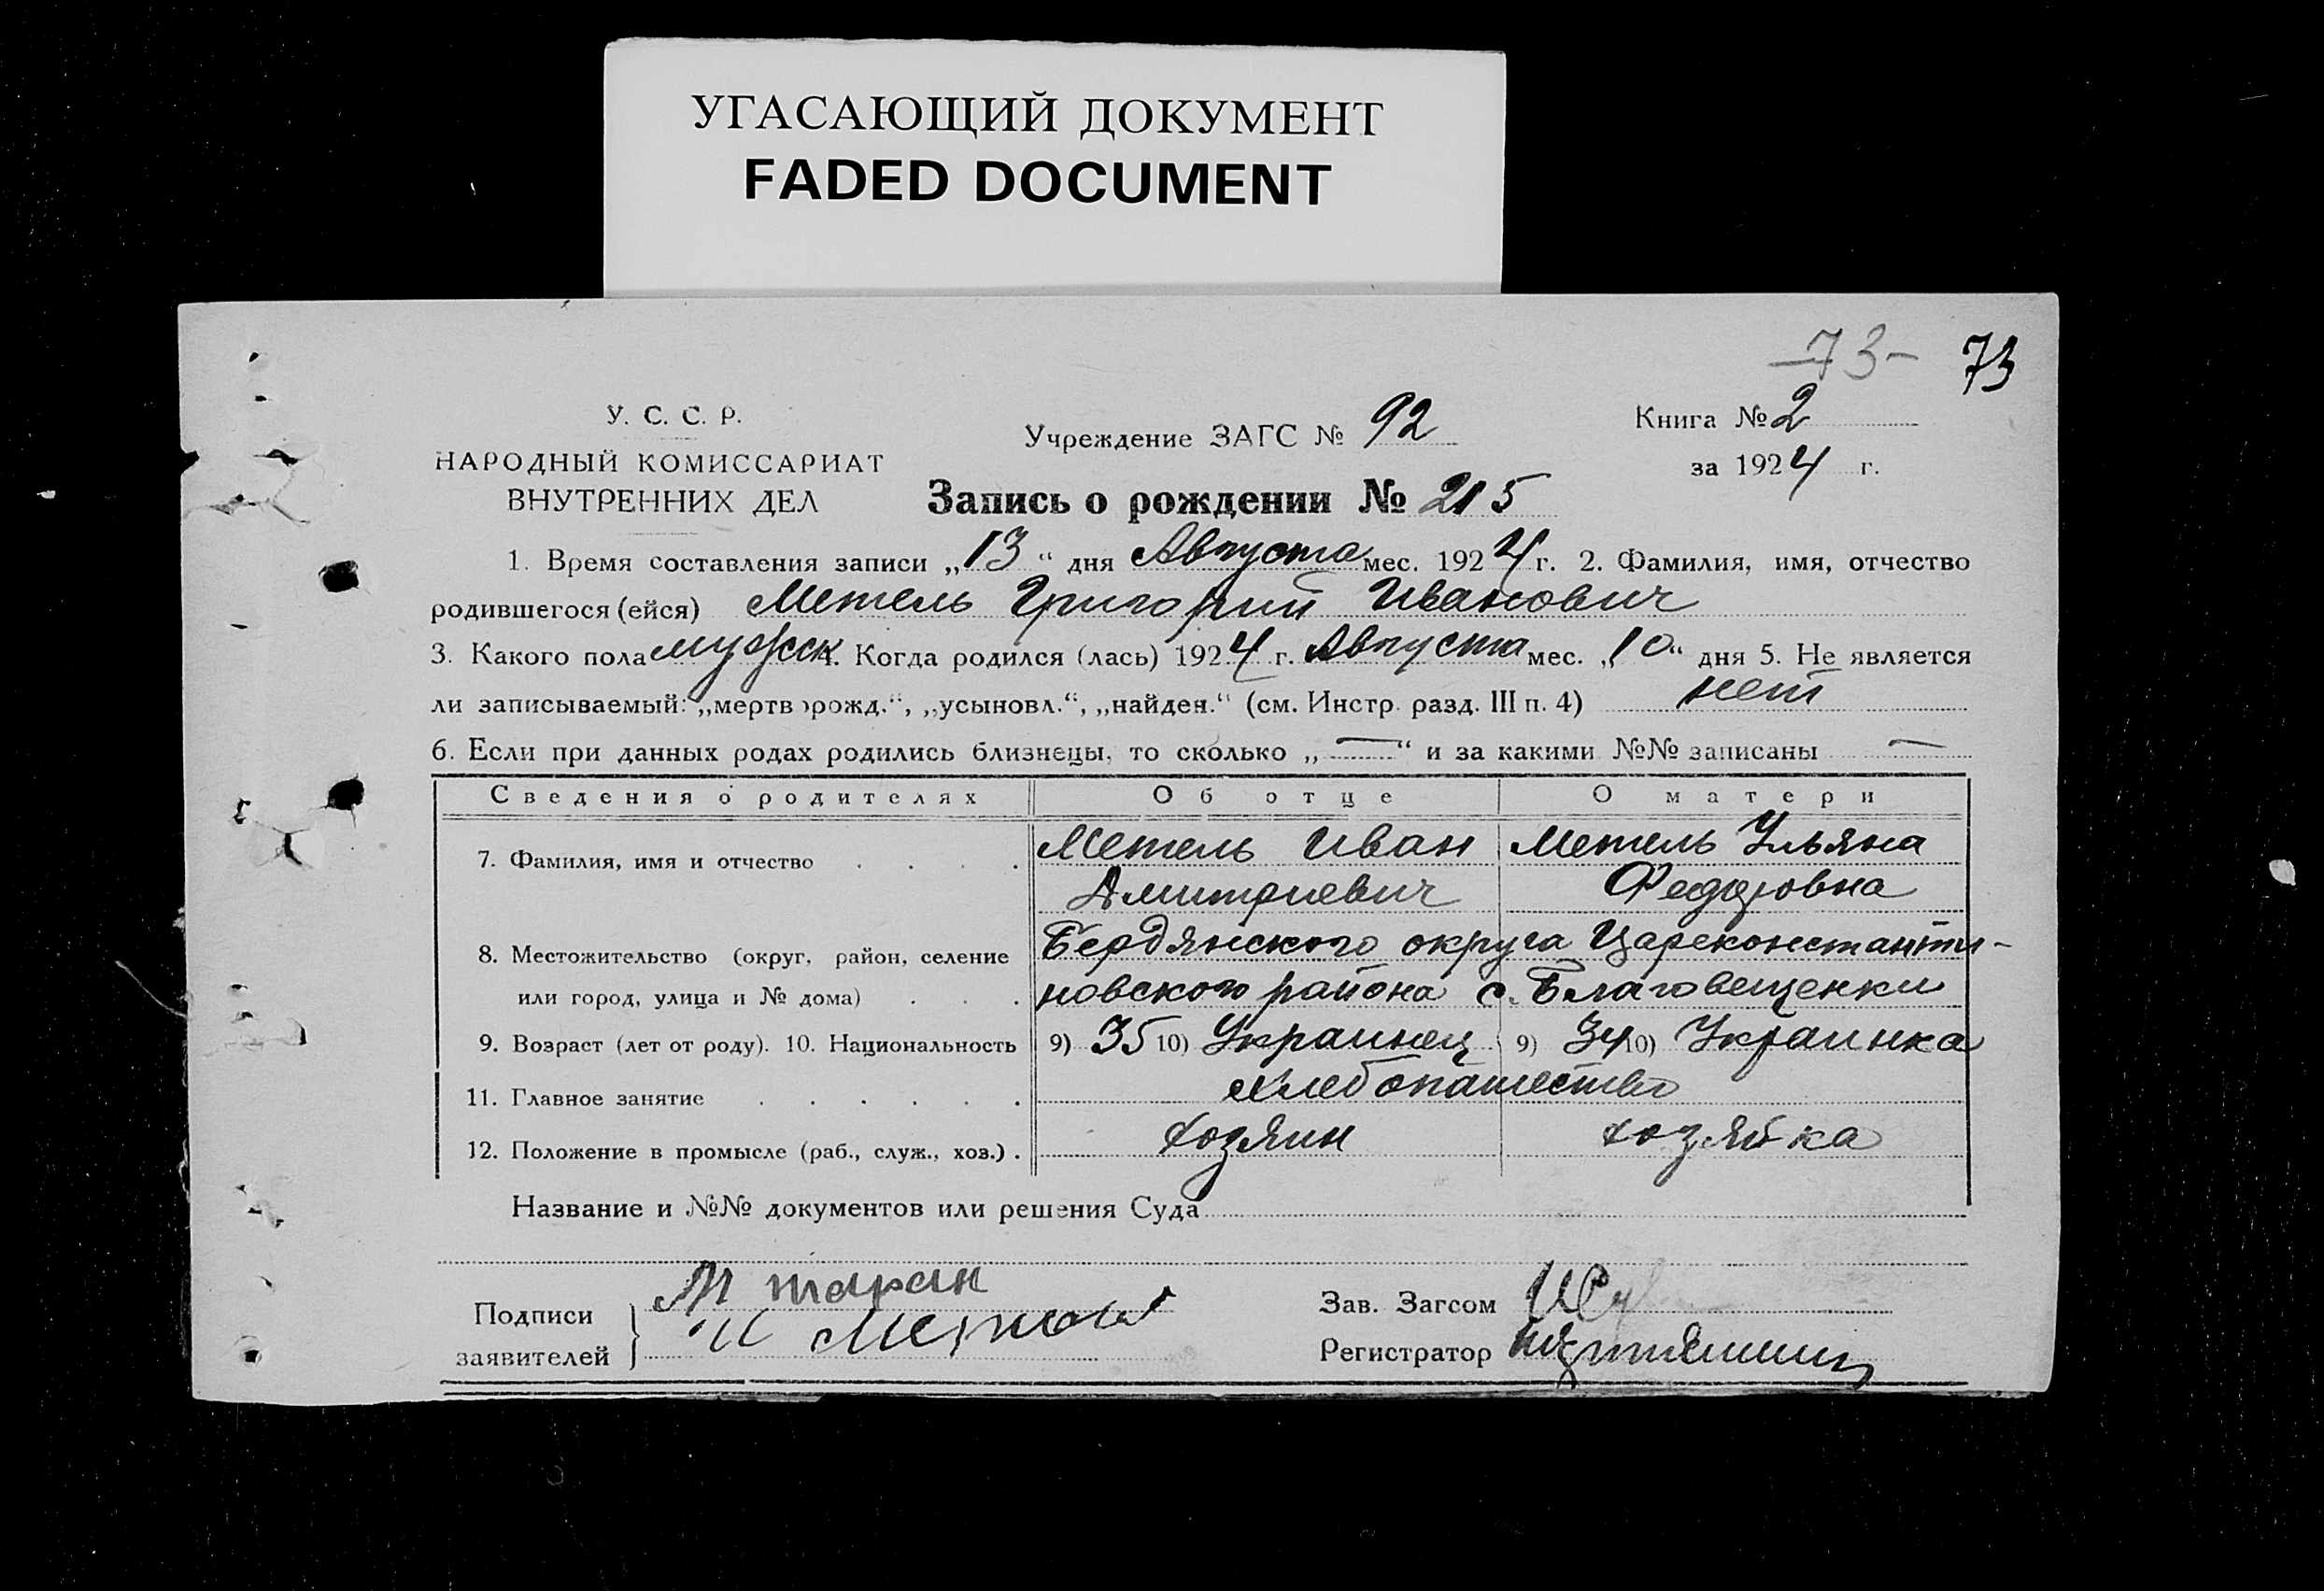 УГАСАЮЩИЙ ДОКУМЕНТ
FADED DOCUMENT
-73- 73
У. С. С. Р.
НАРОДНЫЙ КОМИССАРИАТ
ВНУТРЕННИХ ДЕЛ
Учреждение ЗАГС № 92
Книга № 2
за 1924 г.
Запись о рождении № 215
1. Время составления записи „13“ дня Августа мес. 1924 г. 2. Фамилия, имя, отчество
родившегося (ейся) Метель Григорий Иванович
3. Какого пола мужск 4. Когда родился (лась) 1924 г. Августа мес. „10“ дня 5. Не является
ли записываемый: „мертворожд.“, „усыновл.“, „найден.“ (см. Инстр. разд. III п. 4) нет
6. Если при данных родах родились близнецы, то сколько „—“ и за какими №№ записаны —
Сведения о родителях Об отце О матери
7. Фамилия, имя и отчество . . . . Метель Иван Метель Ульяна
Дмитриевич Федоровна
8. Местожительство (округ, район, селение Бердянского округа Цареконстанти-
или город, улица и № дома) . . . новского района с. Благовещенки
9. Возраст (лет от роду). 10. Национальность 9) 35 10) Украинец 9) 34 10) Украинка
11. Главное занятие . . . . . . хлебопашество
12. Положение в промысле (раб., служ., хоз.) . хозяин хозяйка
Название и №№ документов или решения Суда
Подписи
заявителей
М таран
И
Зав. Загсом
Регистратор